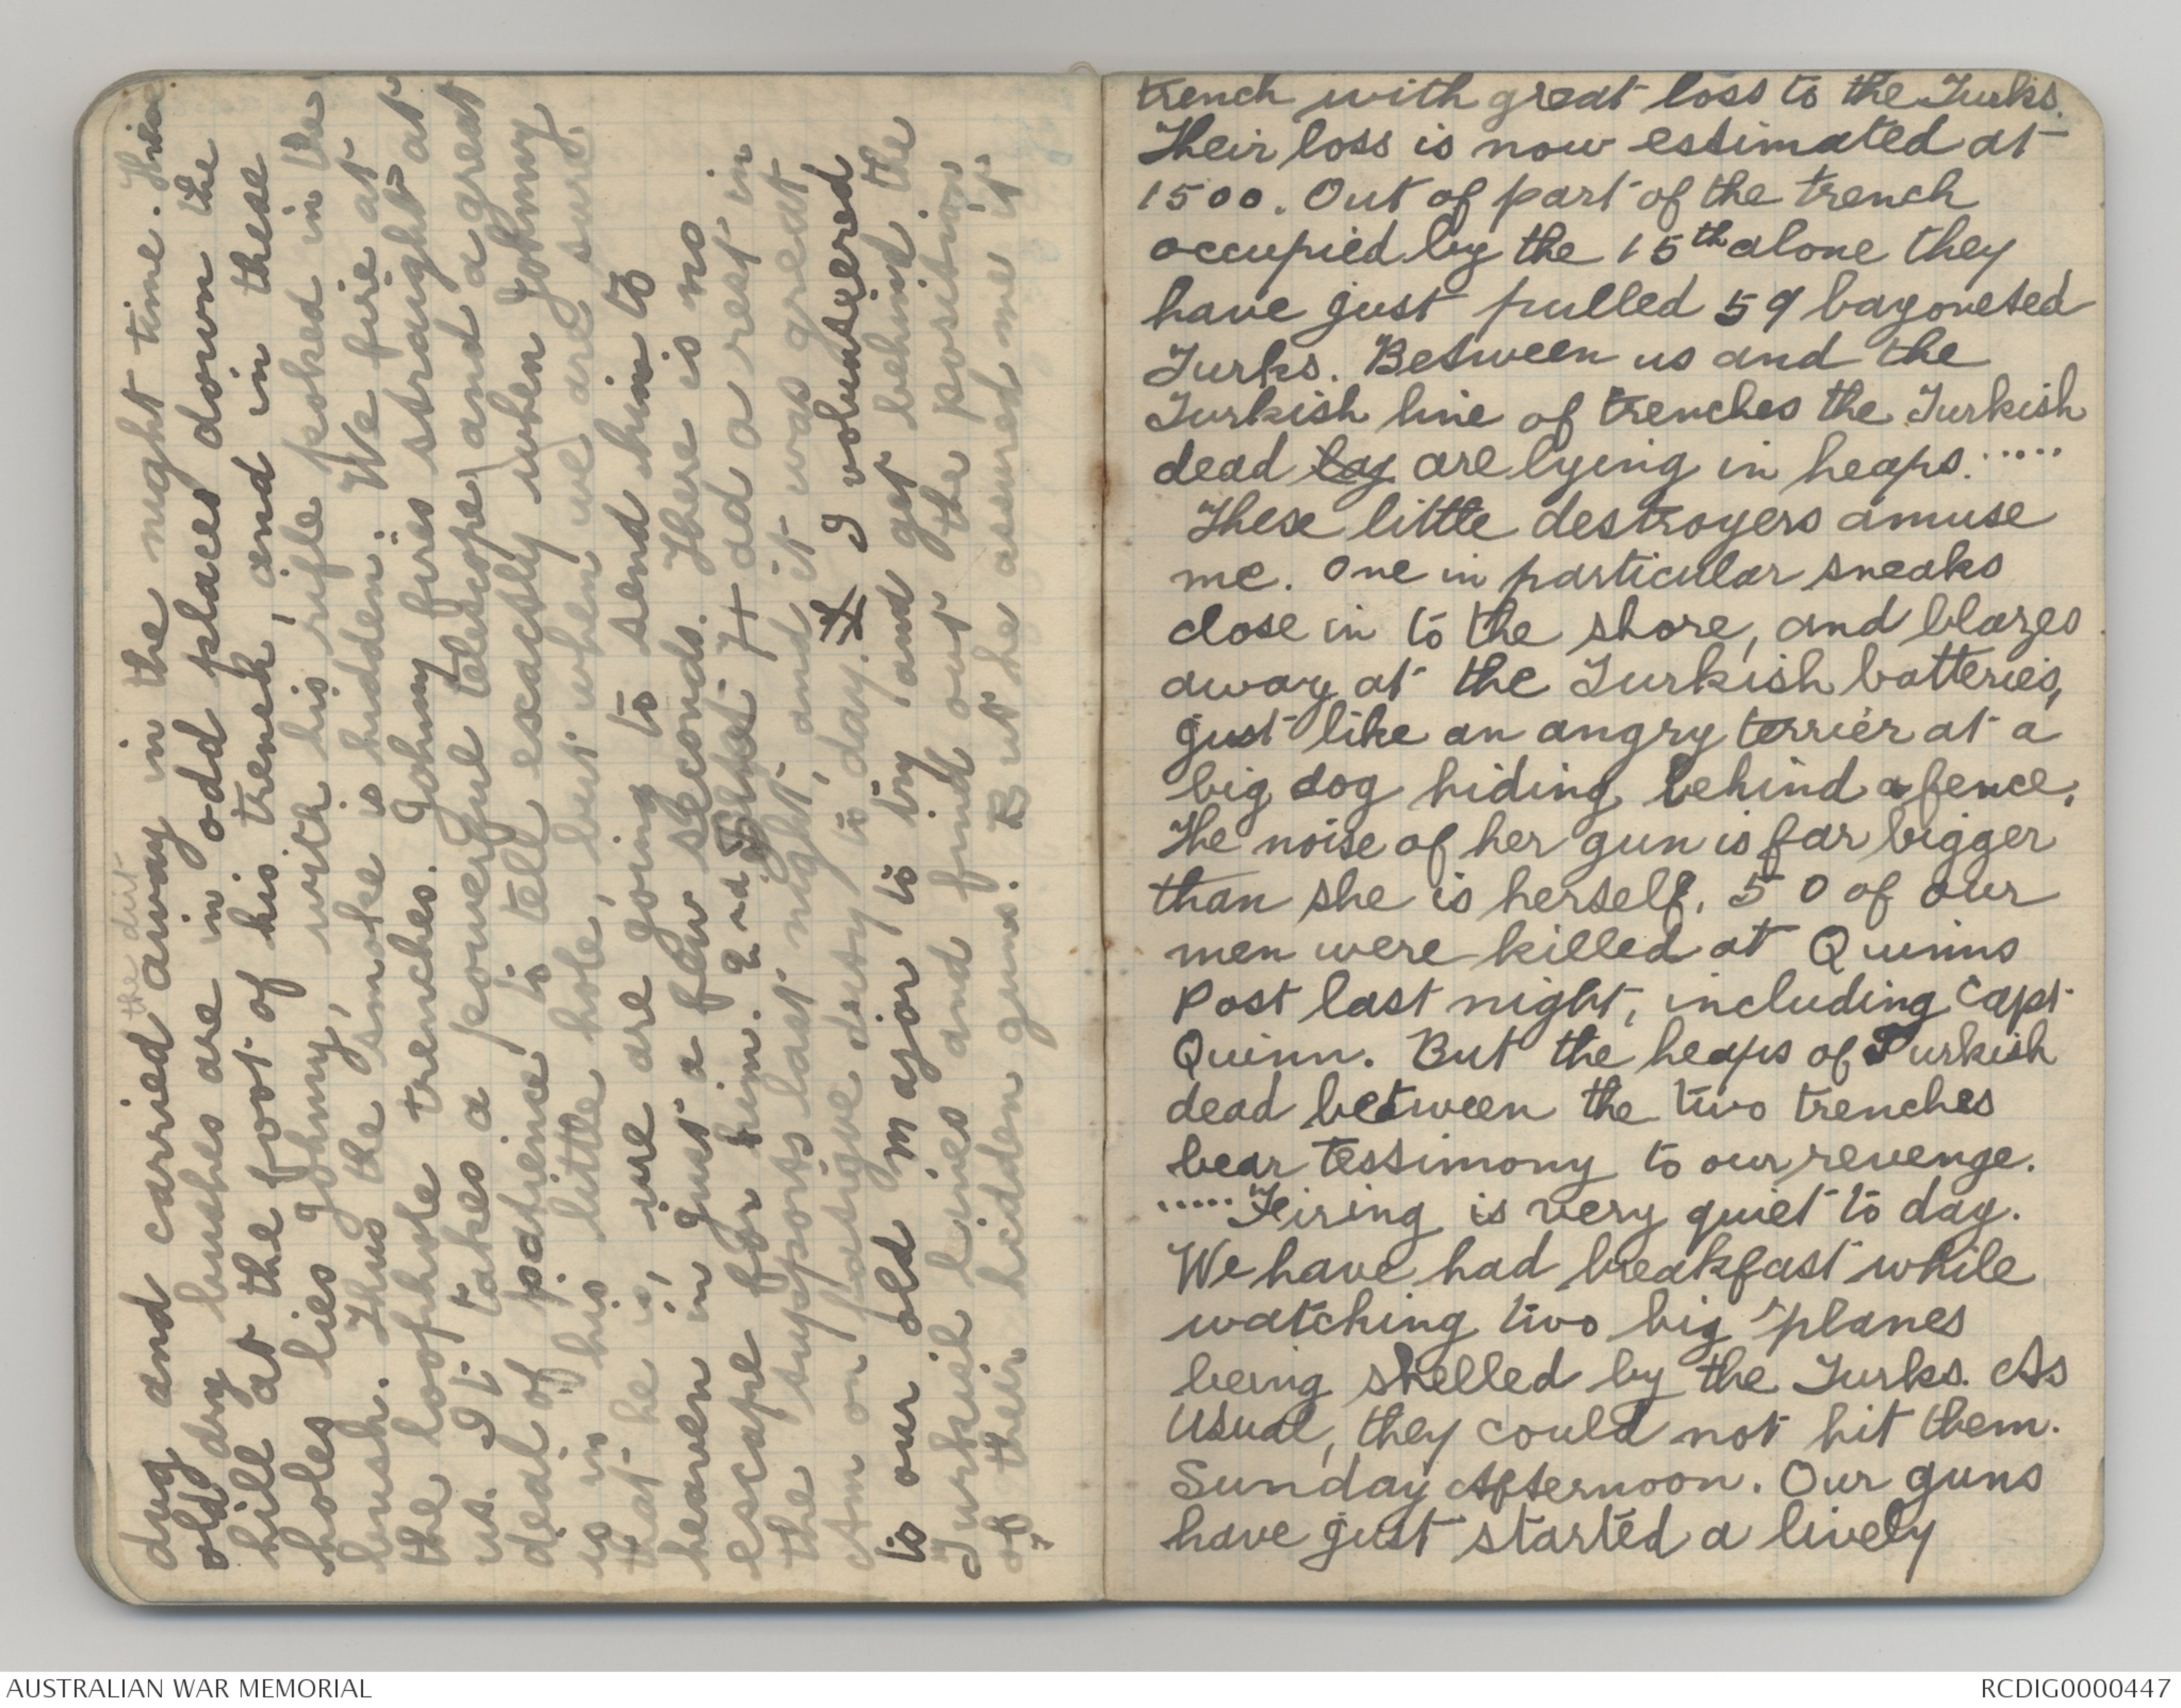 the dirt
dug and carried away in the night time. These
old dry bushes are in odd places down the
hill at the foot of his trench, and in these
holes lies Johnny, with his rifle poked in the
bush. Thus the smoke is hidden. We fire at
the loophole trenches. Johnny fires straight at
us. It takes a powerful telescope, and a great
deal of patience to tell exactly when Johnny
is in his little hole, but when we are sure
that he is, we are going to send him to
heaven in just a few seconds. There is no
escape for him. 2nd Had a rest in
the supports last night, and it was great
Am on fatigue duty to day. I volunteered
to our old major to try and get behind the
Turkish lines and find out the position
of their hidden guns. But he assured me it
trench with great loss to the Turks.
Their loss is now estimated at
1500. Out of part of the trench
occupied by the 15th alone they
have just pulled 59 bayoneted
Turks. Between us and the
Turkish line of trenches the Turkish
dead lay are lying in heaps.....
These little destroyers amuse
me. One in particular sneaks
close in to the shore, and blazes
away at the Turkish batteries,
just like an angry terrier at a
big dog hiding behind a fence.
The noise of her gun is far bigger
than she is herself. 50 of our
men were killed at Quinns
Post last night, including Capt
Quinn. But the heaps of Turkish
dead between the two trenches
bear testimony to our revenge.
..... Firing is very quiet to day.
We have had breakfast while
watching two big 'planes
being shelled by the Turks. As
usual, they could not hit them.
Sunday Afternoon. Our guns
have just started a lively
AUSTRALIAN WAR MEMORIAL
RCDIG0000447